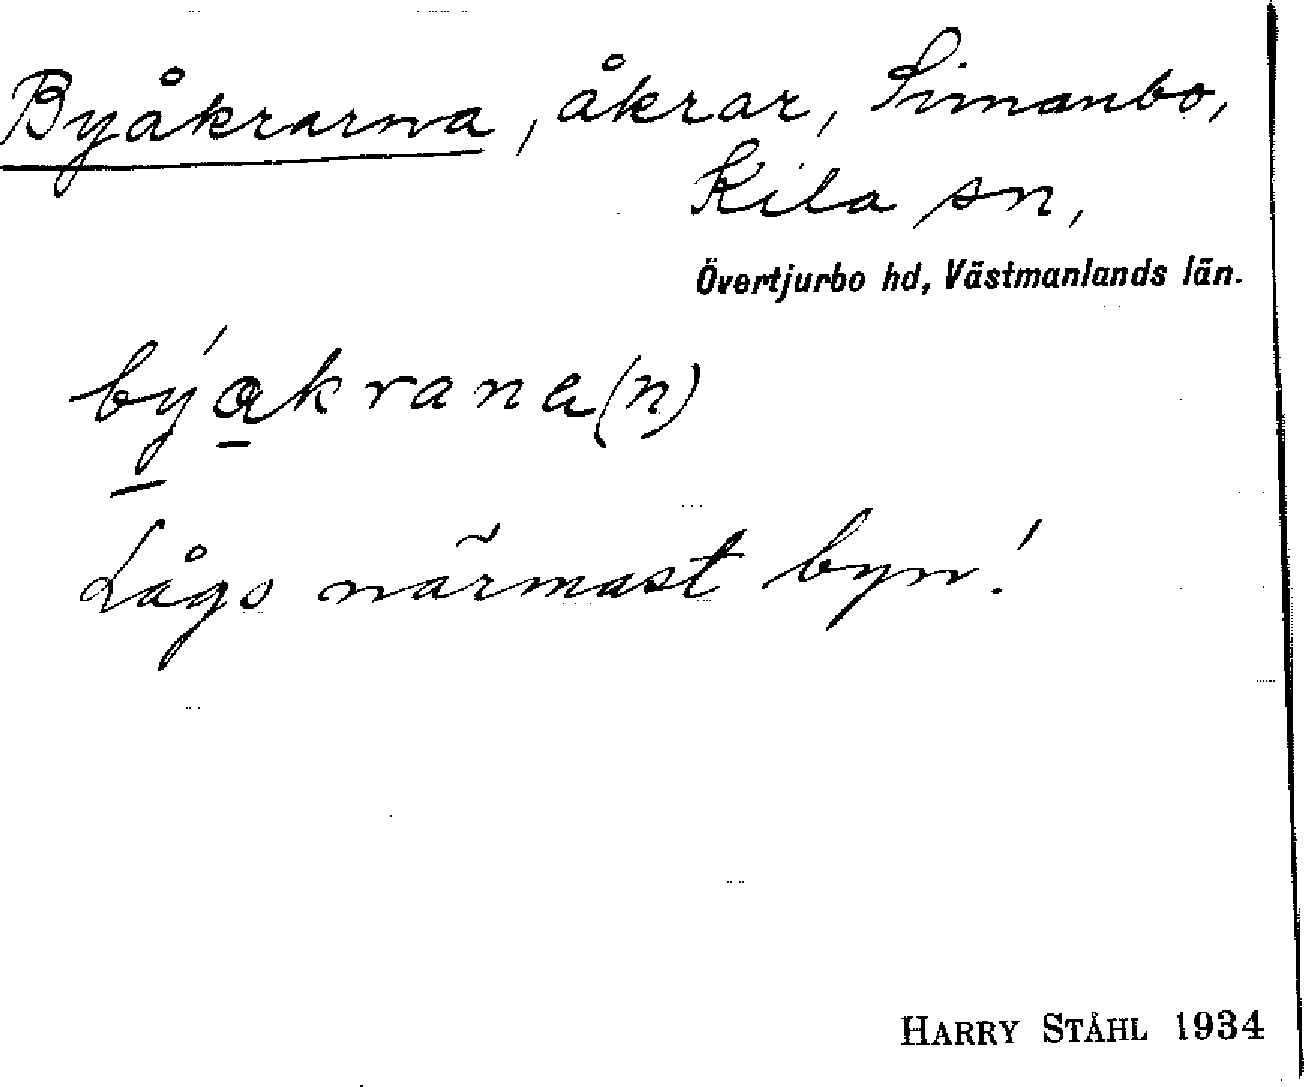 Byåkrarna, åkrar, Simanbo,
Kila sn,
Övertjurbo hd, Västmanlands län.
by´akrana(n)
Lågo närmast byn!
HARRY STÅHL 1934